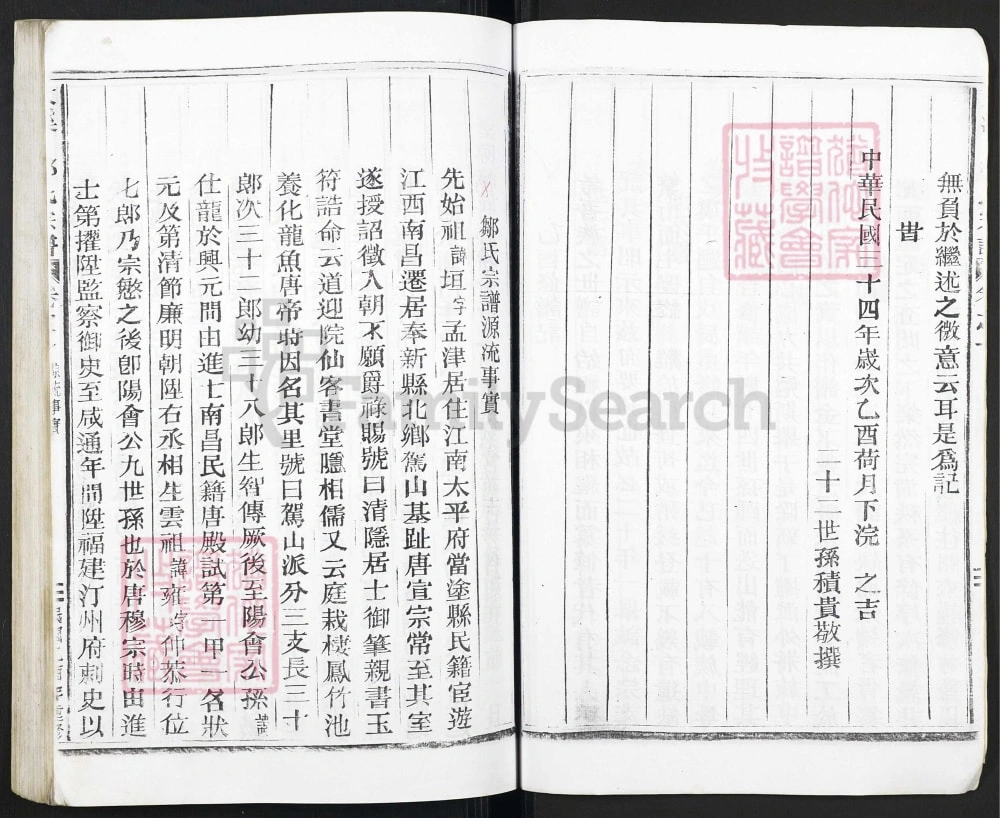 無負於繼述之微意云耳是爲記
旹
中華民國三十四年歲次乙酉荷月下浣 之吉
二十三世孫積貴敬撰
鄒氏宗譜源流事實
先始祖諱垣字孟津居住江南太平府當塗縣民籍宦遊
江西南昌遷居奉新縣北鄉駕山基趾唐宣宗常至其室
遂授詔徵入朝不願爵祿賜號曰清隱居士御筆親書玉
符誥命云道迎院仙客書堂隱相儒又云庭栽棲鳳竹池
養化龍魚唐帝時因名其里號曰駕山派分三支長三十
郎次三十二郎幼三十八郎生智傳厥後至陽會公孫諱
仕龍於興元間由進士南昌民籍唐殿試第一甲一名狀
元及第清節廉明朝陞右丞相生雲祖諱雍字仲恭行位
七郎乃宗慾之後卽陽會公九世孫也於唐穆宗時由進
士第擢陞監察御史至咸通年間陞福建汀州府刺史以
FamilySearch